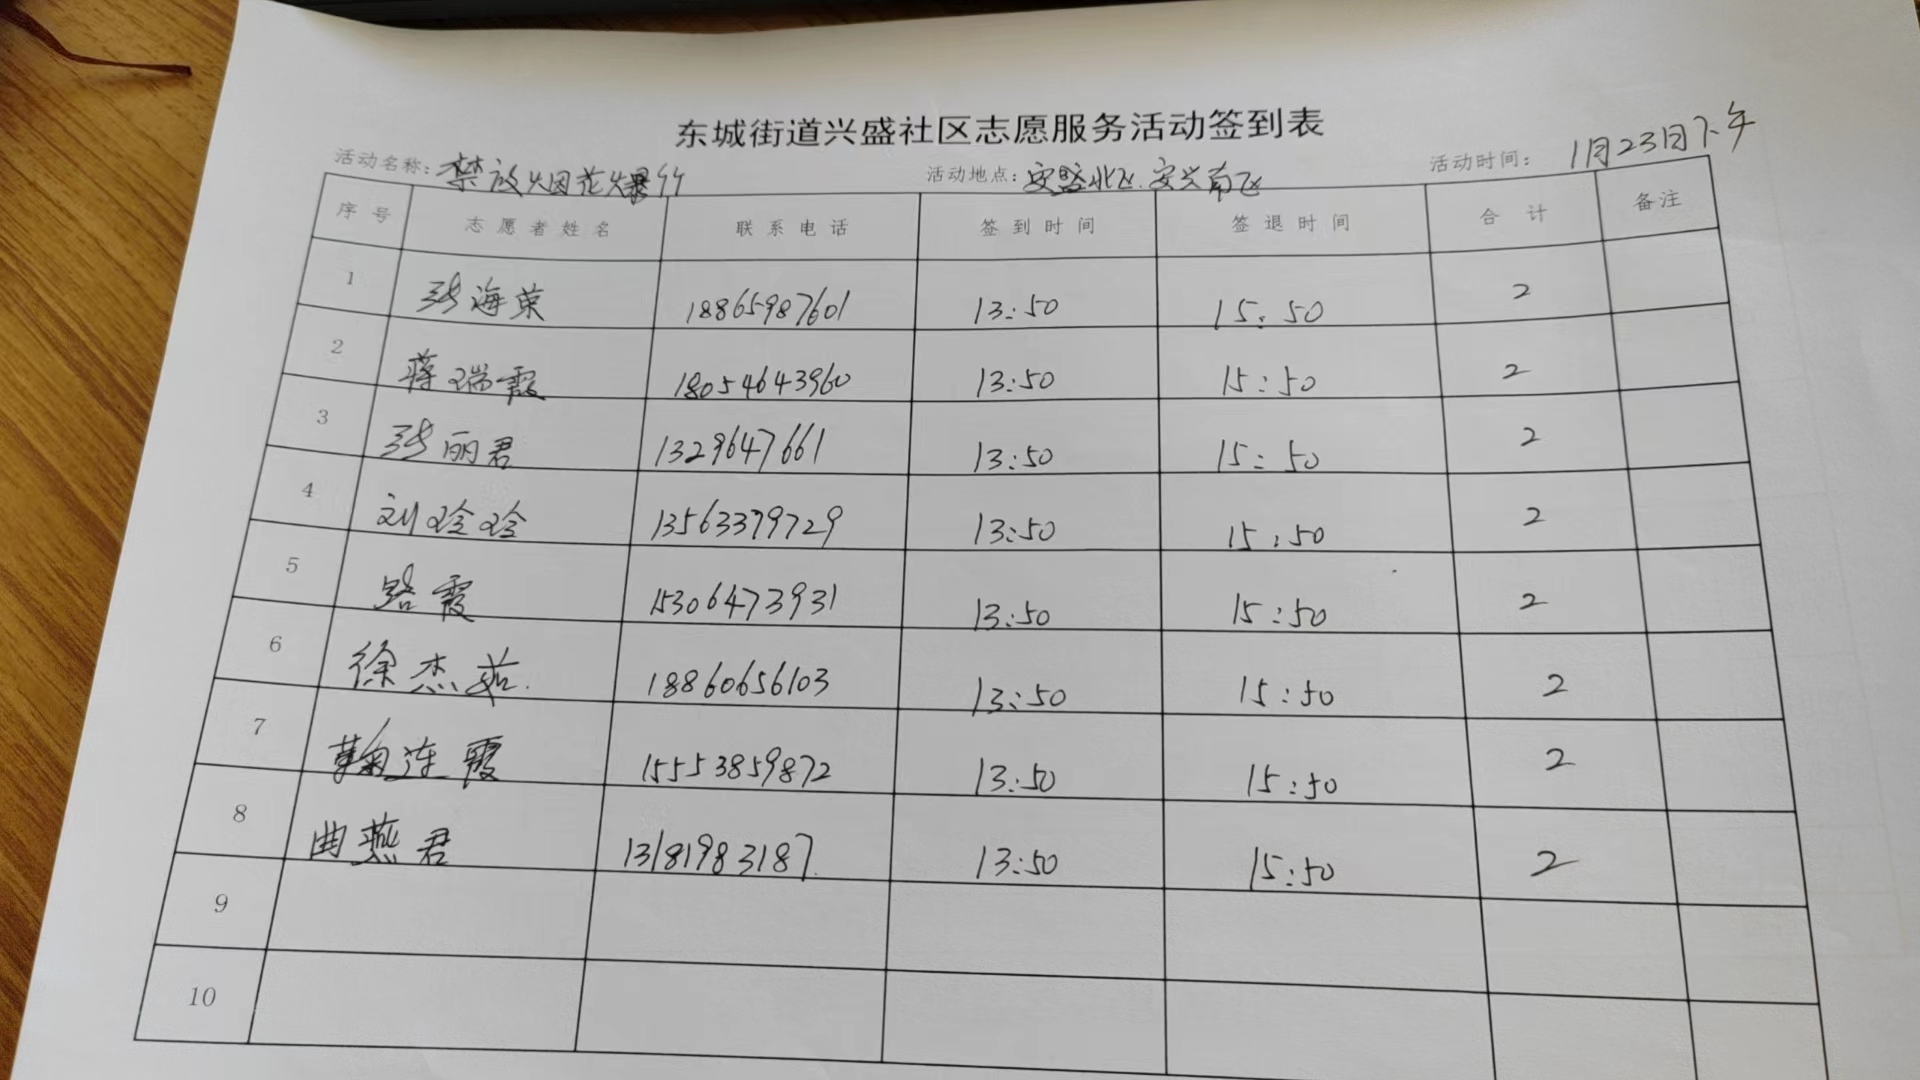 东城街道兴盛社区志愿服务活动签到表
活动名称: 禁放烟花爆竹 活动地点: 安盛北区.安兴南区 活动时间: 1月23日下午
序号 志愿者姓名 联系电话 签到时间 签退时间 合计 备注
1 张海荣 18865987601 13:50 15:50 2
2 蒋瑞霞 18054643960 13:50 15:50 2
3 张丽君 1329647661 13:50 15:50 2
4 刘玲玲 13563379729 13:50 15:50 2
5 路霞 15306473931 13:50 15:50 2
6 徐杰茹. 18860656103 13:50 15:50 2
7 鞠连霞 15553859872 13:50 15:50 2
8 曲燕君 13181983187. 13:50 15:50 2
9
10